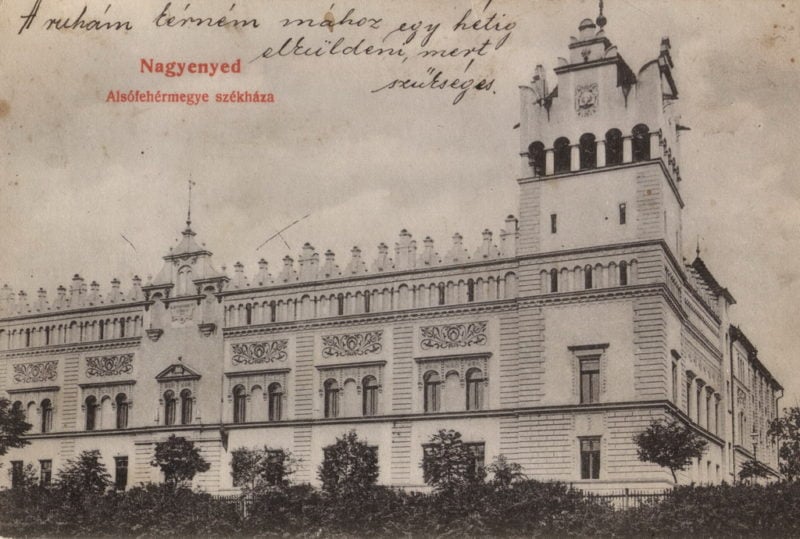 A ruhám térném mához egy hétig
elküldeni, mert
szükséges.
Nagyenyed
Alsófehérmegye székháza